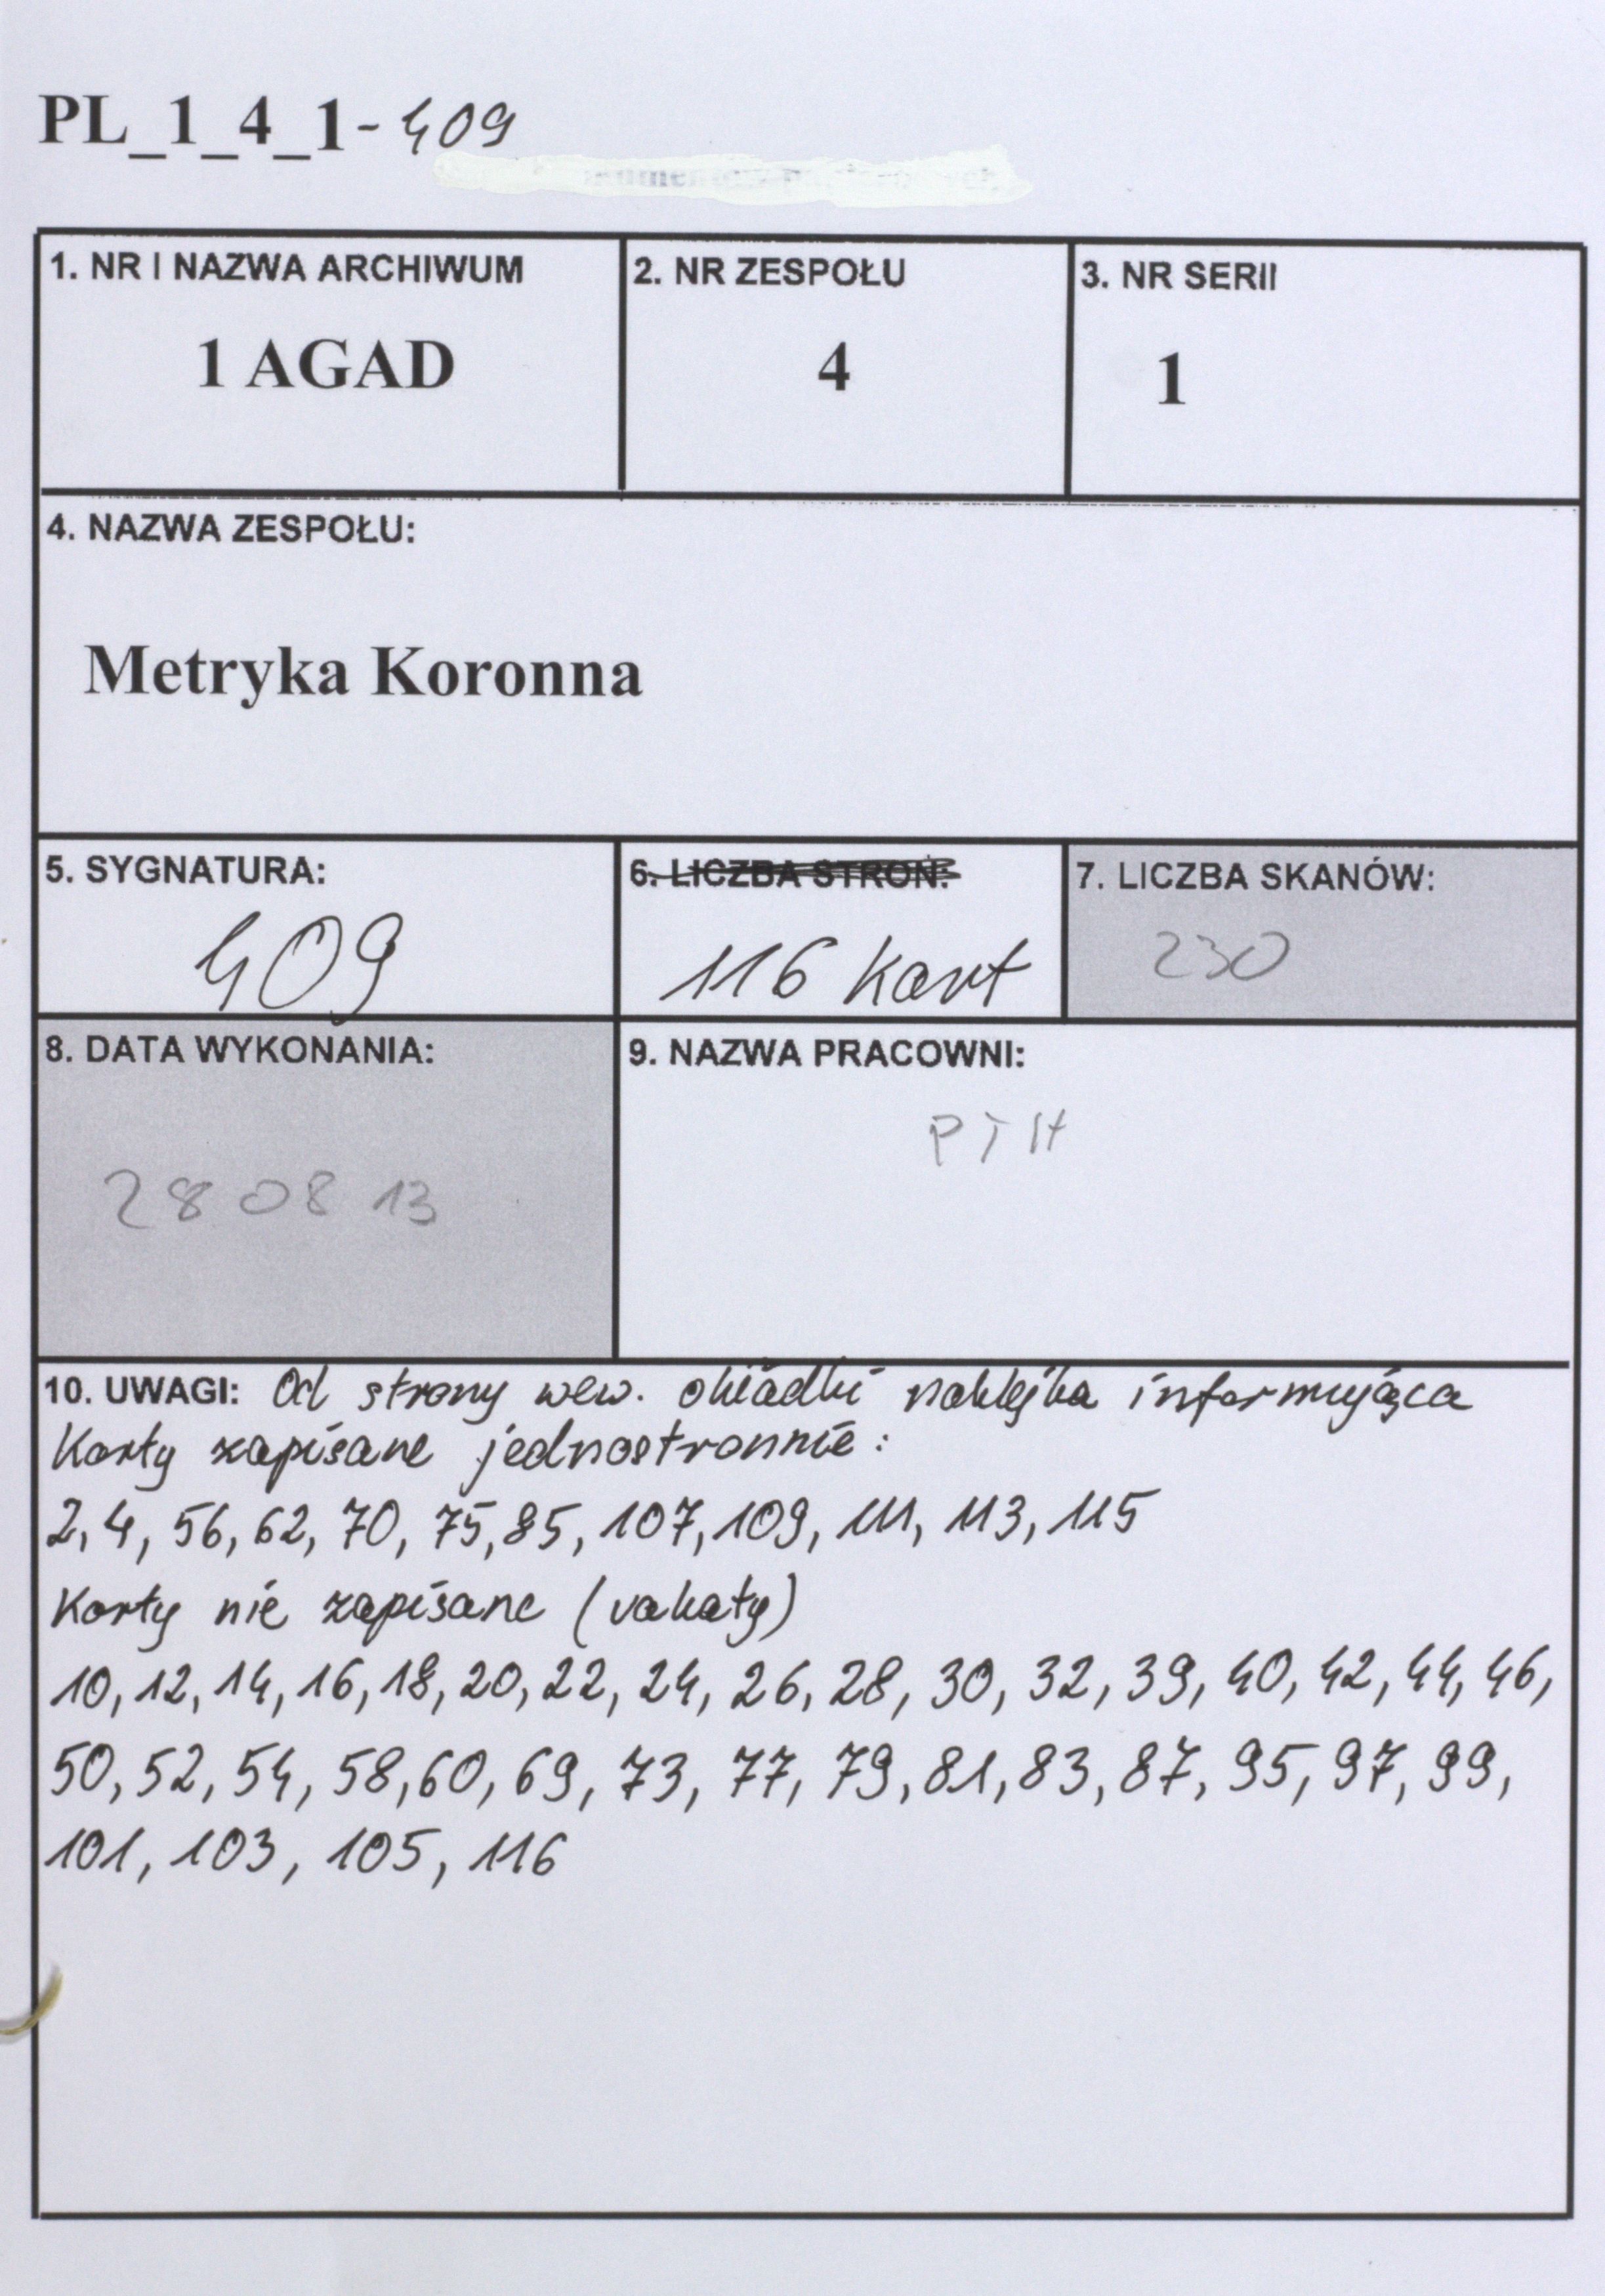 PL_1_4_1-409
1. NR I NAZWA ARCHIWUM
1 AGAD
2. NR ZESPOŁU
4
3. NR SERII
1
4. NAZWA ZESPOŁU:
Metryka Koronna
5. SYGNATURA:
409
6. LICZBA STRON:
116 kart
7. LICZBA SKANÓW:
230
8. DATA WYKONANIA:
28 08 13
9. NAZWA PRACOWNI:
PTH
10. UWAGI: Od strony wew. okładki naklejka informująca
Karty zapisane jednostronnie:
2, 4, 56, 62, 70, 75, 85, 107, 109, 111, 113, 115
Karty nie zapisane (vakaty)
10, 12, 14, 16, 18, 20, 22, 24, 26, 28, 30, 32, 39, 40, 42, 44, 46,
50, 52, 54, 58, 60, 69, 73, 77, 79, 81, 83, 87, 95, 97, 99,
101, 103, 105, 116